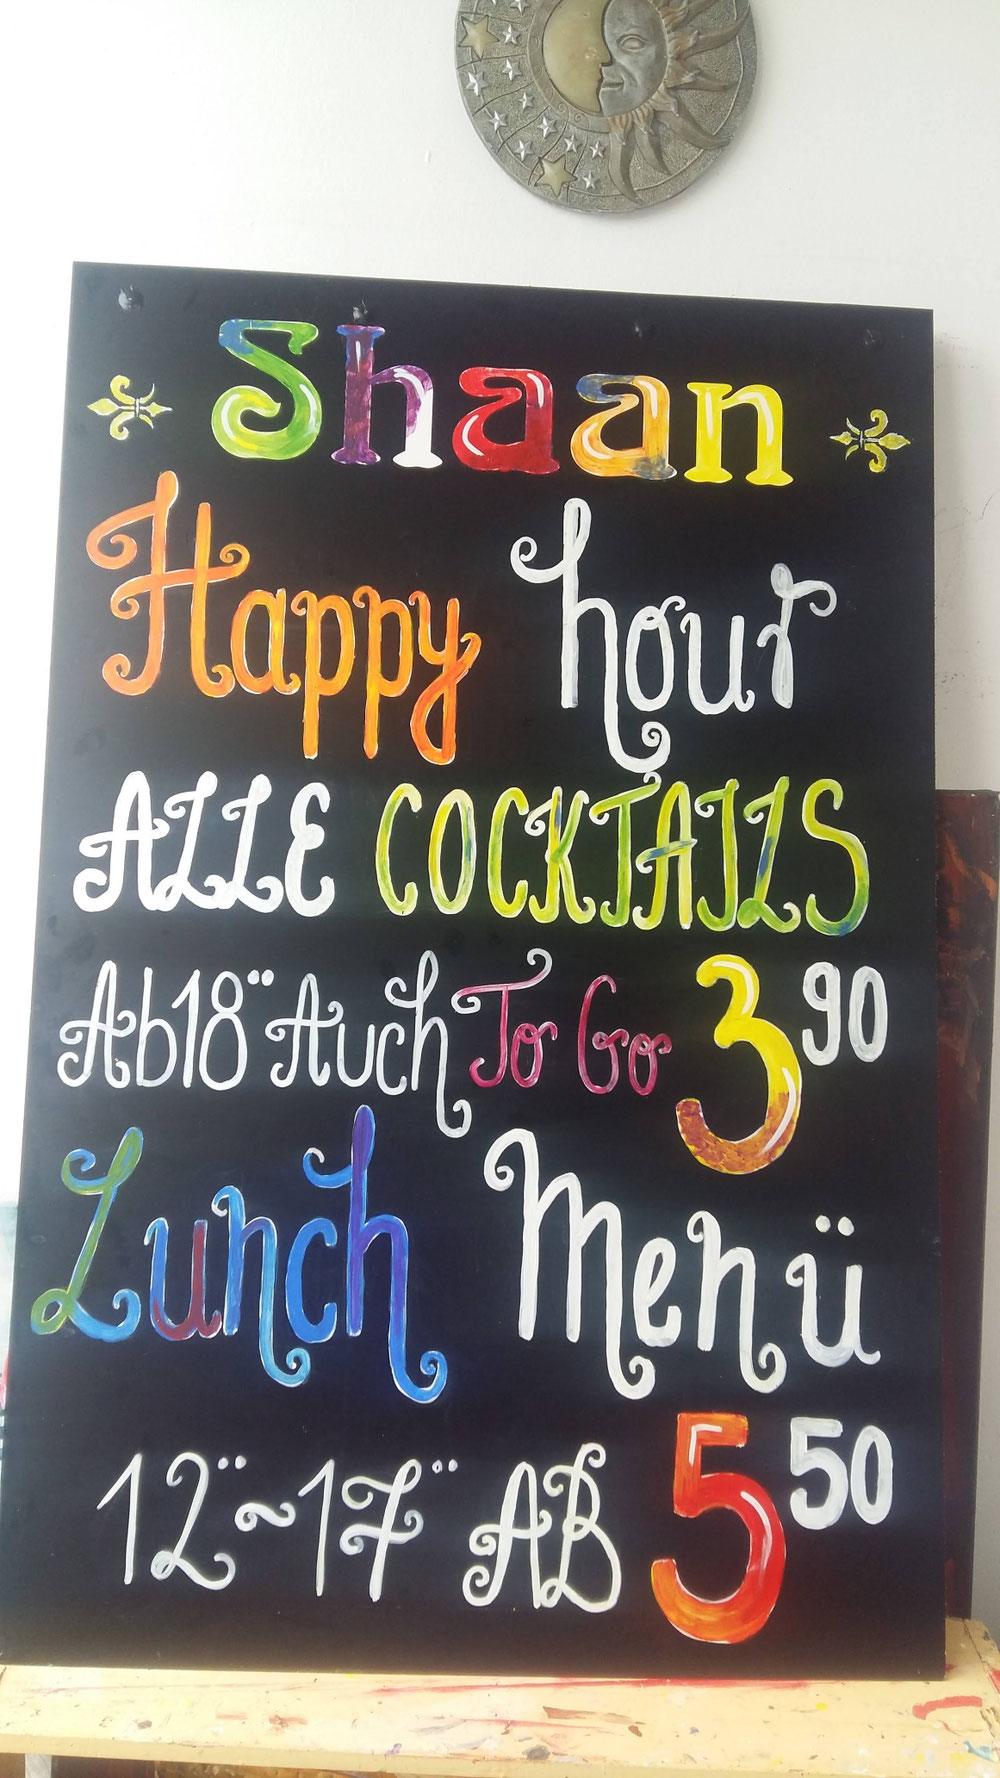 Shaan
Happy hour
ALLE COCKTAILS
Ab 18°° Auch To Go 3 90
Lunch Menü
12°° ~ 17°° AB 5 50